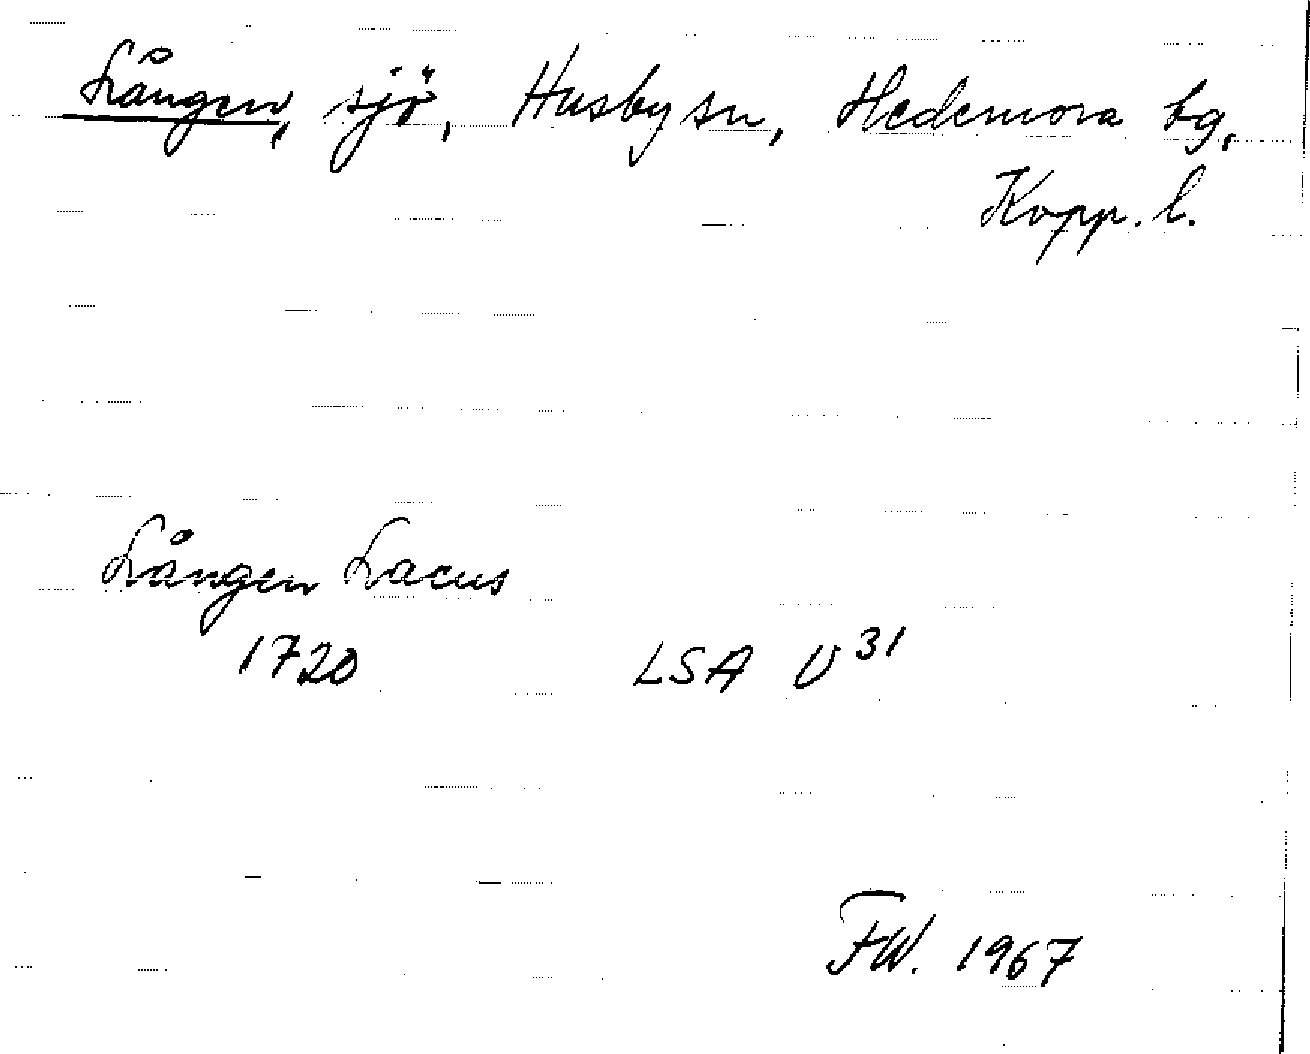 Lången, sjö, Husby sn, Hedemora tg,
Kopp. l.
Lången Lacus
1720 LSA U 31
FW. 1967